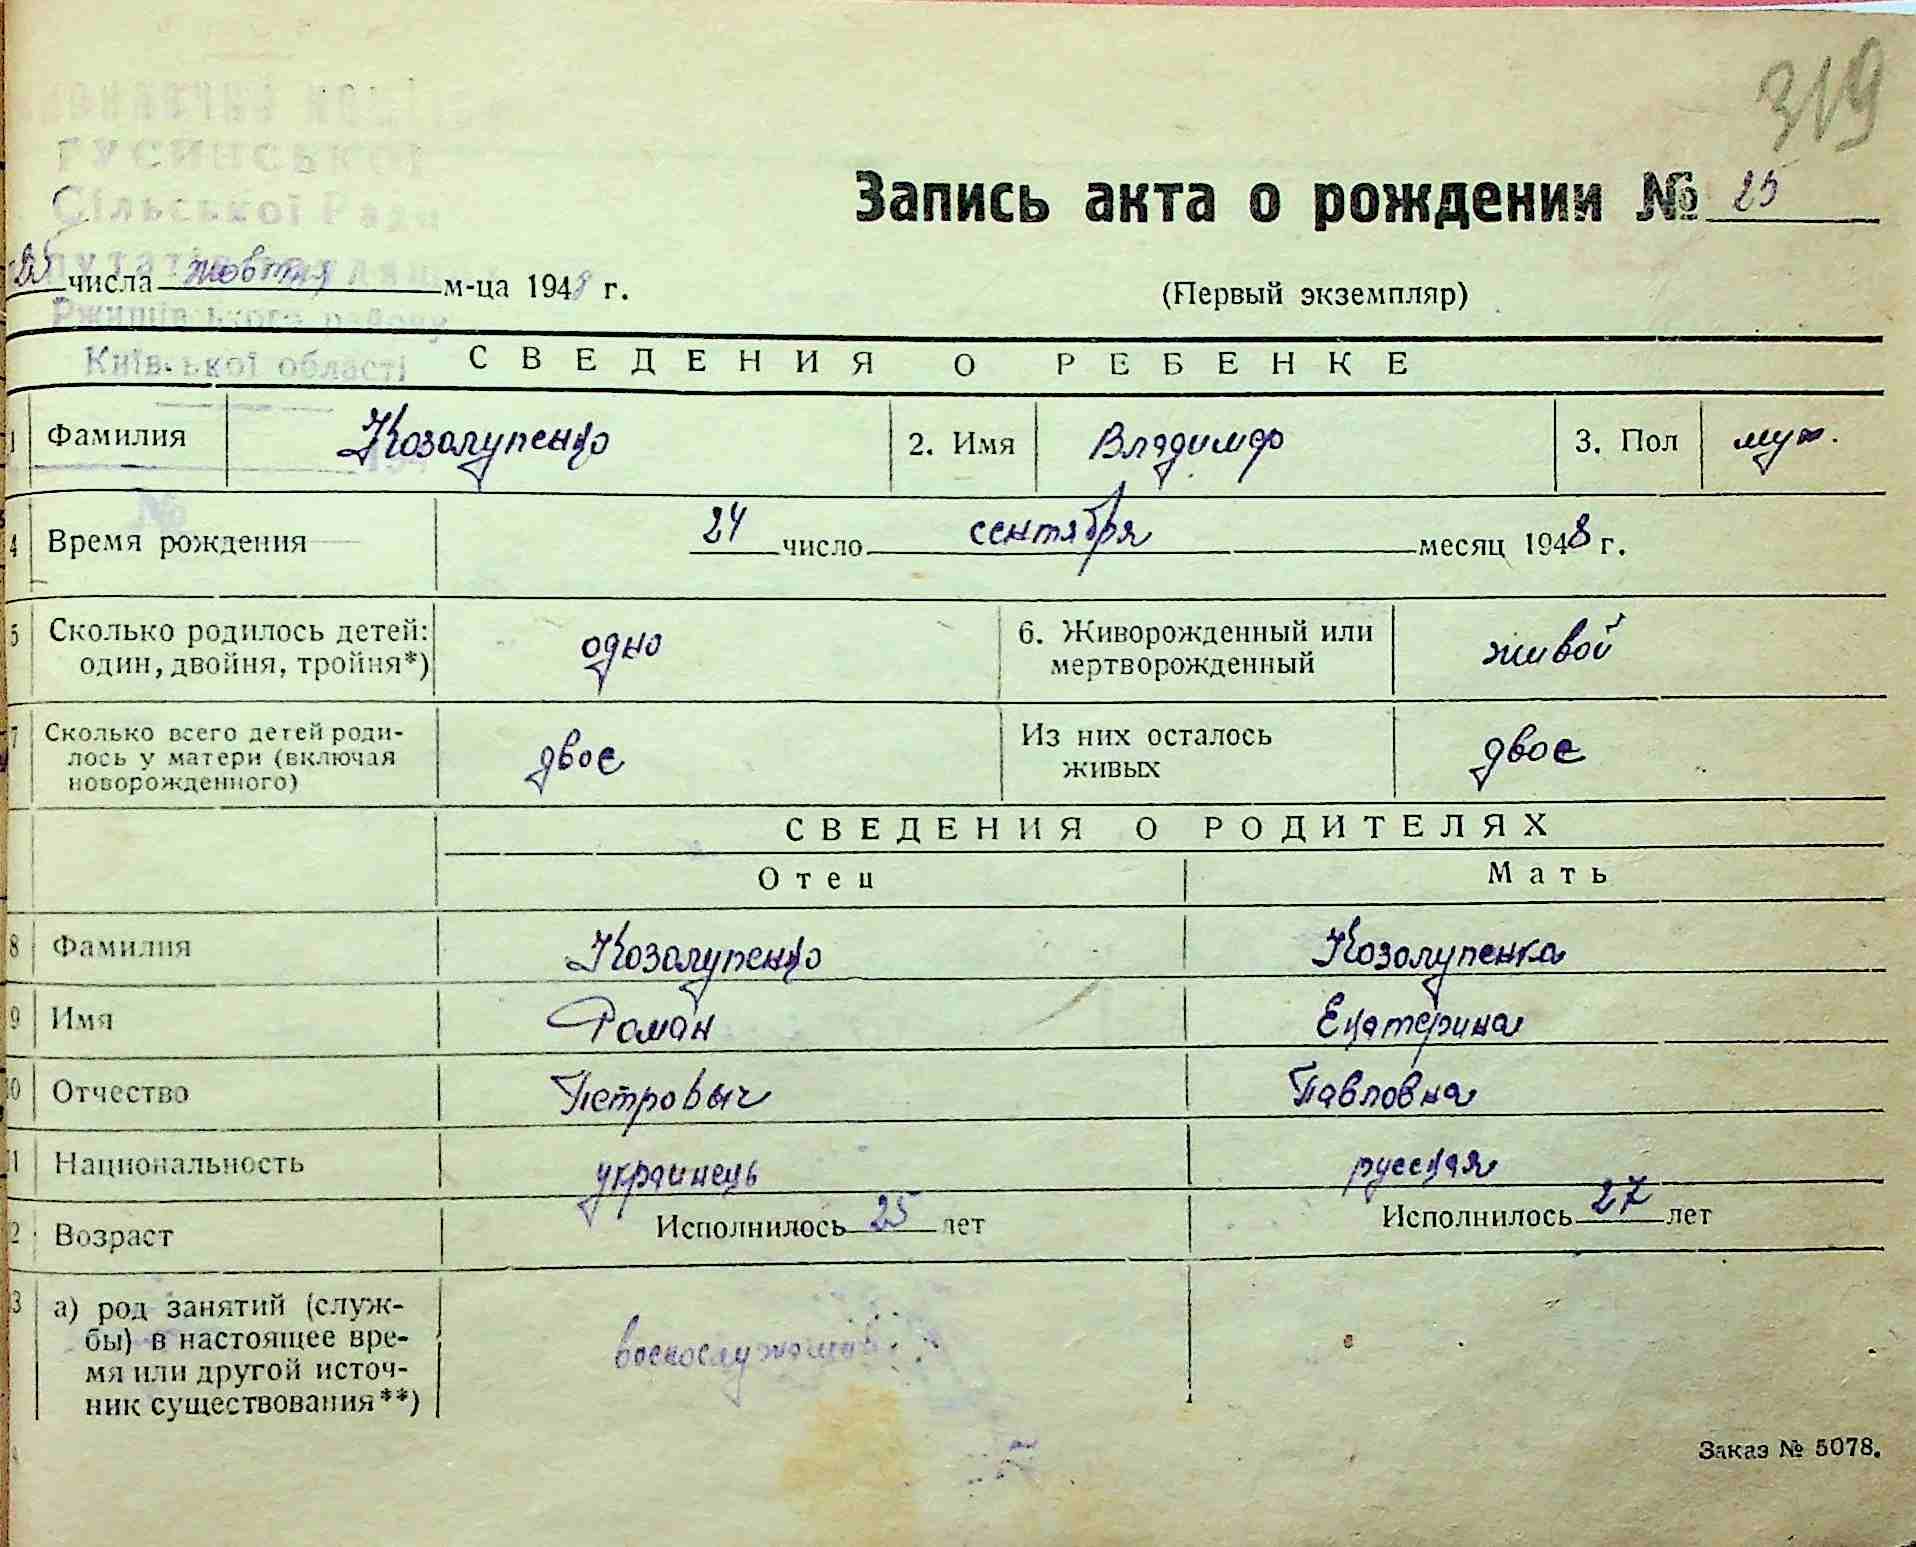 319
ГУСИНСЬКОЇ
Сільської Ради
Ржищівського району
Київської області
№
Запись акта о рождении № 25
25 числа жовтня м-ца 1948 г.
(Первый экземпляр)
СВЕДЕНИЯ О РЕБЕНКЕ
1 Фамилия Козолупенко 2. Имя Владимир 3. Пол муж.
4 Время рождения 24 число сентября месяц 1948 г.
5 Сколько родилось детей: один, двойня, тройня*) одно 6. Живорожденный или мертворожденный живой
7 Сколько всего детей родилось у матери (включая новорожденного) двое Из них осталось живых двое
СВЕДЕНИЯ О РОДИТЕЛЯХ
Отец Мать
8 Фамилия Козолупенко Козолупенка
9 Имя Роман Екатерина
10 Отчество Петровыч Павловна
11 Национальность украинець русская
2 Возраст Исполнилось 25 лет Исполнилось 27 лет
3 а) род занятий (служ-
бы) в настоящее вре-
мя или другой источ-
ник существования**)
военослужащий
Заказ № 5078.